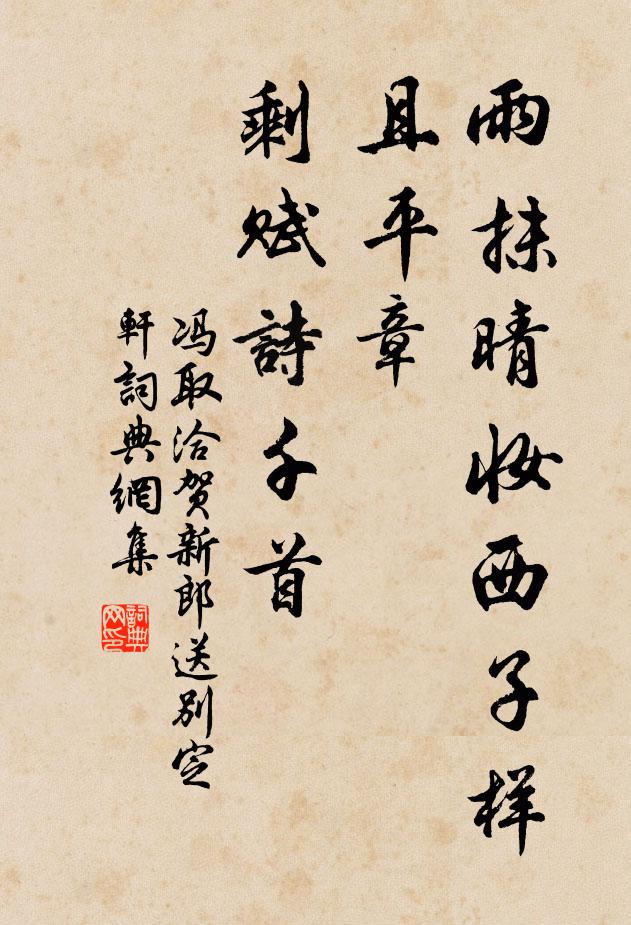 雨抹晴妆西子样
且平章
剩赋詩千首
冯取洽贺新郎送别定
軒詞典網集
詞典网印